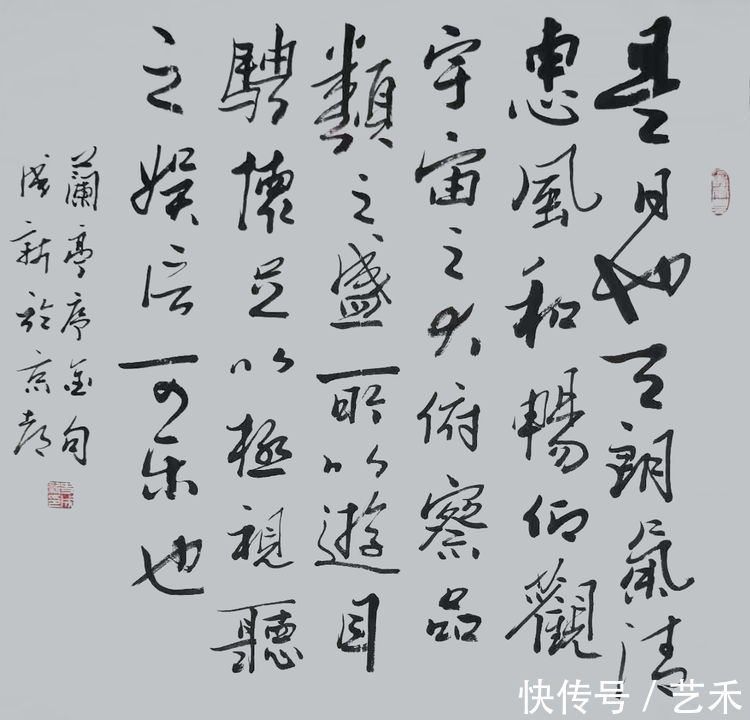 是日也天朗氣清
惠風和暢仰觀
宇宙之大俯察品
類之盛所以遊目
騁懷足以極視聽
之娛信可樂也
蘭亭序金句
新於京都
快传号 / 艺禾